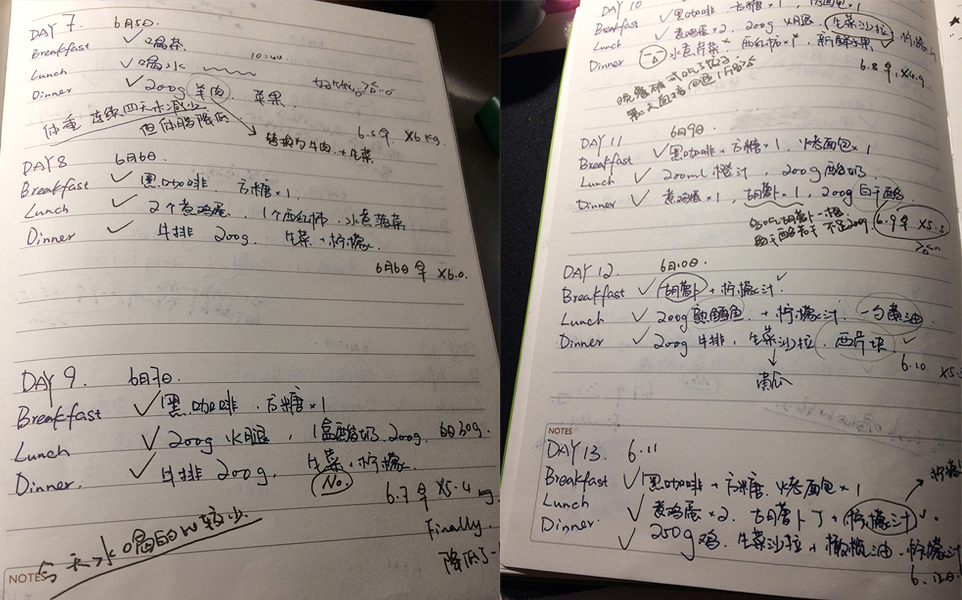 DAY 7 6月5日.
Breakfast ✓ 喝茶
10:40.
Lunch ✓ 喝水
Dinner ✓ 200g 羊肉. 苹果.
体重 连续四天未减少
但体脂降低
替换为牛肉 + 生菜
6.5早 ×6 kg.
DAY 8 6月6日.
Breakfast ✓ 黑咖啡. 方糖×1.
Lunch ✓ 2个煮鸡蛋. 1个西红柿. 水煮菠菜
Dinner ✓ 牛排 200g. 生菜+柠檬.
6月6日早 ×6.0.
DAY 9. 6月7日.
Breakfast ✓ 黑咖啡. 方糖×1
Lunch ✓ 200g火腿, 1盒酸奶 200g.
Dinner. ✓ 牛排 200g. 生菜+柠檬.
No.
6.7早 ×5.4 kg
Finally.
降低了
今天水喝的比较少.
NOTES
DAY 10
Breakfast ✓ 黑咖啡. 方糖×1.
Lunch ✓ 煮鸡蛋×2. 200g火腿. 生菜沙拉
Dinner 水煮芹菜 西红柿×1, 新鲜水果
6.8早, ×4.9.
DAY 11 6月9日.
Breakfast ✓ 黑咖啡+方糖×1. 烤面包×1
Lunch ✓ 200ml 橙汁, 200g酸奶.
Dinner ✓ 煮鸡蛋×1, 胡萝卜×1, 200g白干酪
不足200g.
6.9早 ×5.3
DAY 12. 6月10日.
Breakfast ✓ 胡萝卜+柠檬汁 ✓
Lunch ✓ 200g熟鳕鱼 + 柠檬汁. 一勺黄油.
Dinner ✓ 200g 牛排, 生菜沙拉.
黄瓜
6.10. ×5.
NOTES
DAY 13. 6.11
Breakfast ✓ 黑咖啡+方糖. 烤面包×1
Lunch ✓ 煮鸡蛋×2. 胡萝卜丁+柠檬汁 ✓
Dinner. ✓ 250g鸡. 生菜沙拉+橄榄油. 柠檬汁
6.12日.